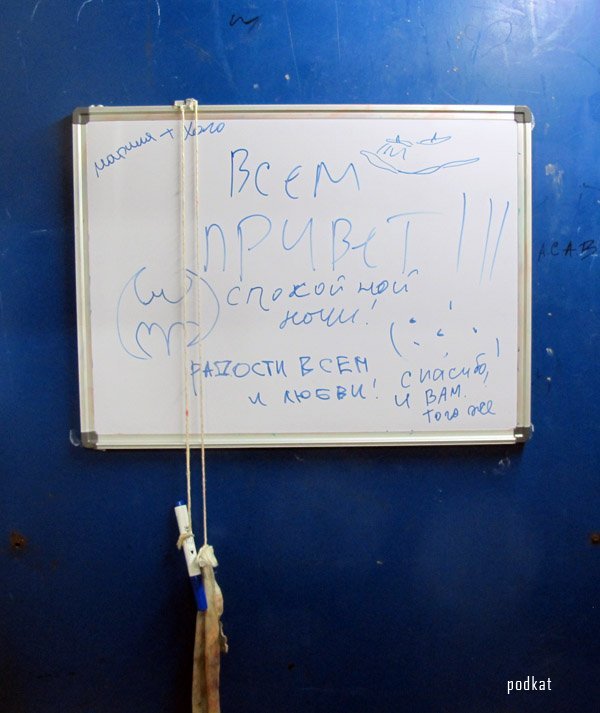 ВСЕМ
ПРИВЕТ!!!
СПОКОЙНОЙ
НОЧИ!
РАДОСТИ ВСЕМ
И ЛЮБВИ!
СПАСИБО,
И ВАМ
ТОГО ЖЕ!
ACAB
podkat